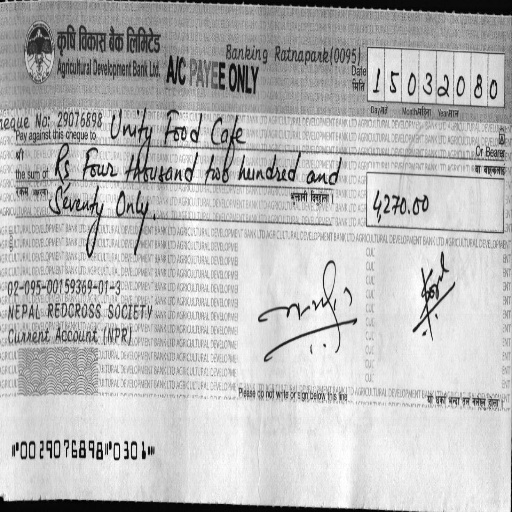 कृषि विकास बैंक लिमिटेड
Agricultural Development Bank Ltd.
A/C PAYEE ONLY
Banking Ratnapark(0095)
Date
मिति
15032080
Day/गते Month/महिना Year/साल
Cheque No: 29076898
Pay against this cheque to
Unity Food Cafe
Or Bearer
श्री
वा वाहकलाई
the sum of
Rs Four thousand two hundred and
रकम
Seventy Only.
4,270.00
02-095-00159369-01-3
NEPAL REDCROSS SOCIETY
Current Account (NPR)
Please do not write or sign below this line
"0029076898"0301"